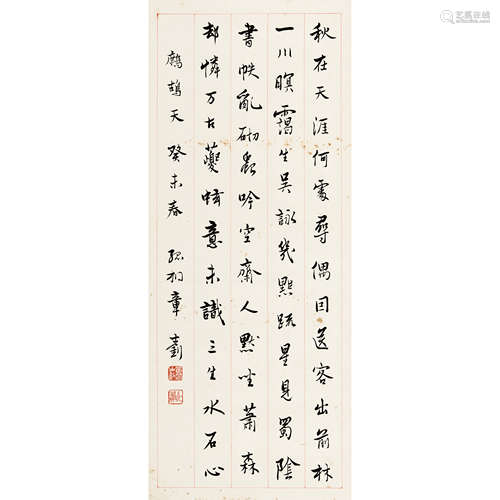 秋在天涯何處尋偶因送客出前林
一川暝靄生吳詠幾點疏星見蜀陰
書帙亂砌蟲吟空齋人默坐蕭森
却憐万古夔蚿意未識三生水石心
鷓鴣天 癸未春 孤桐章士釗